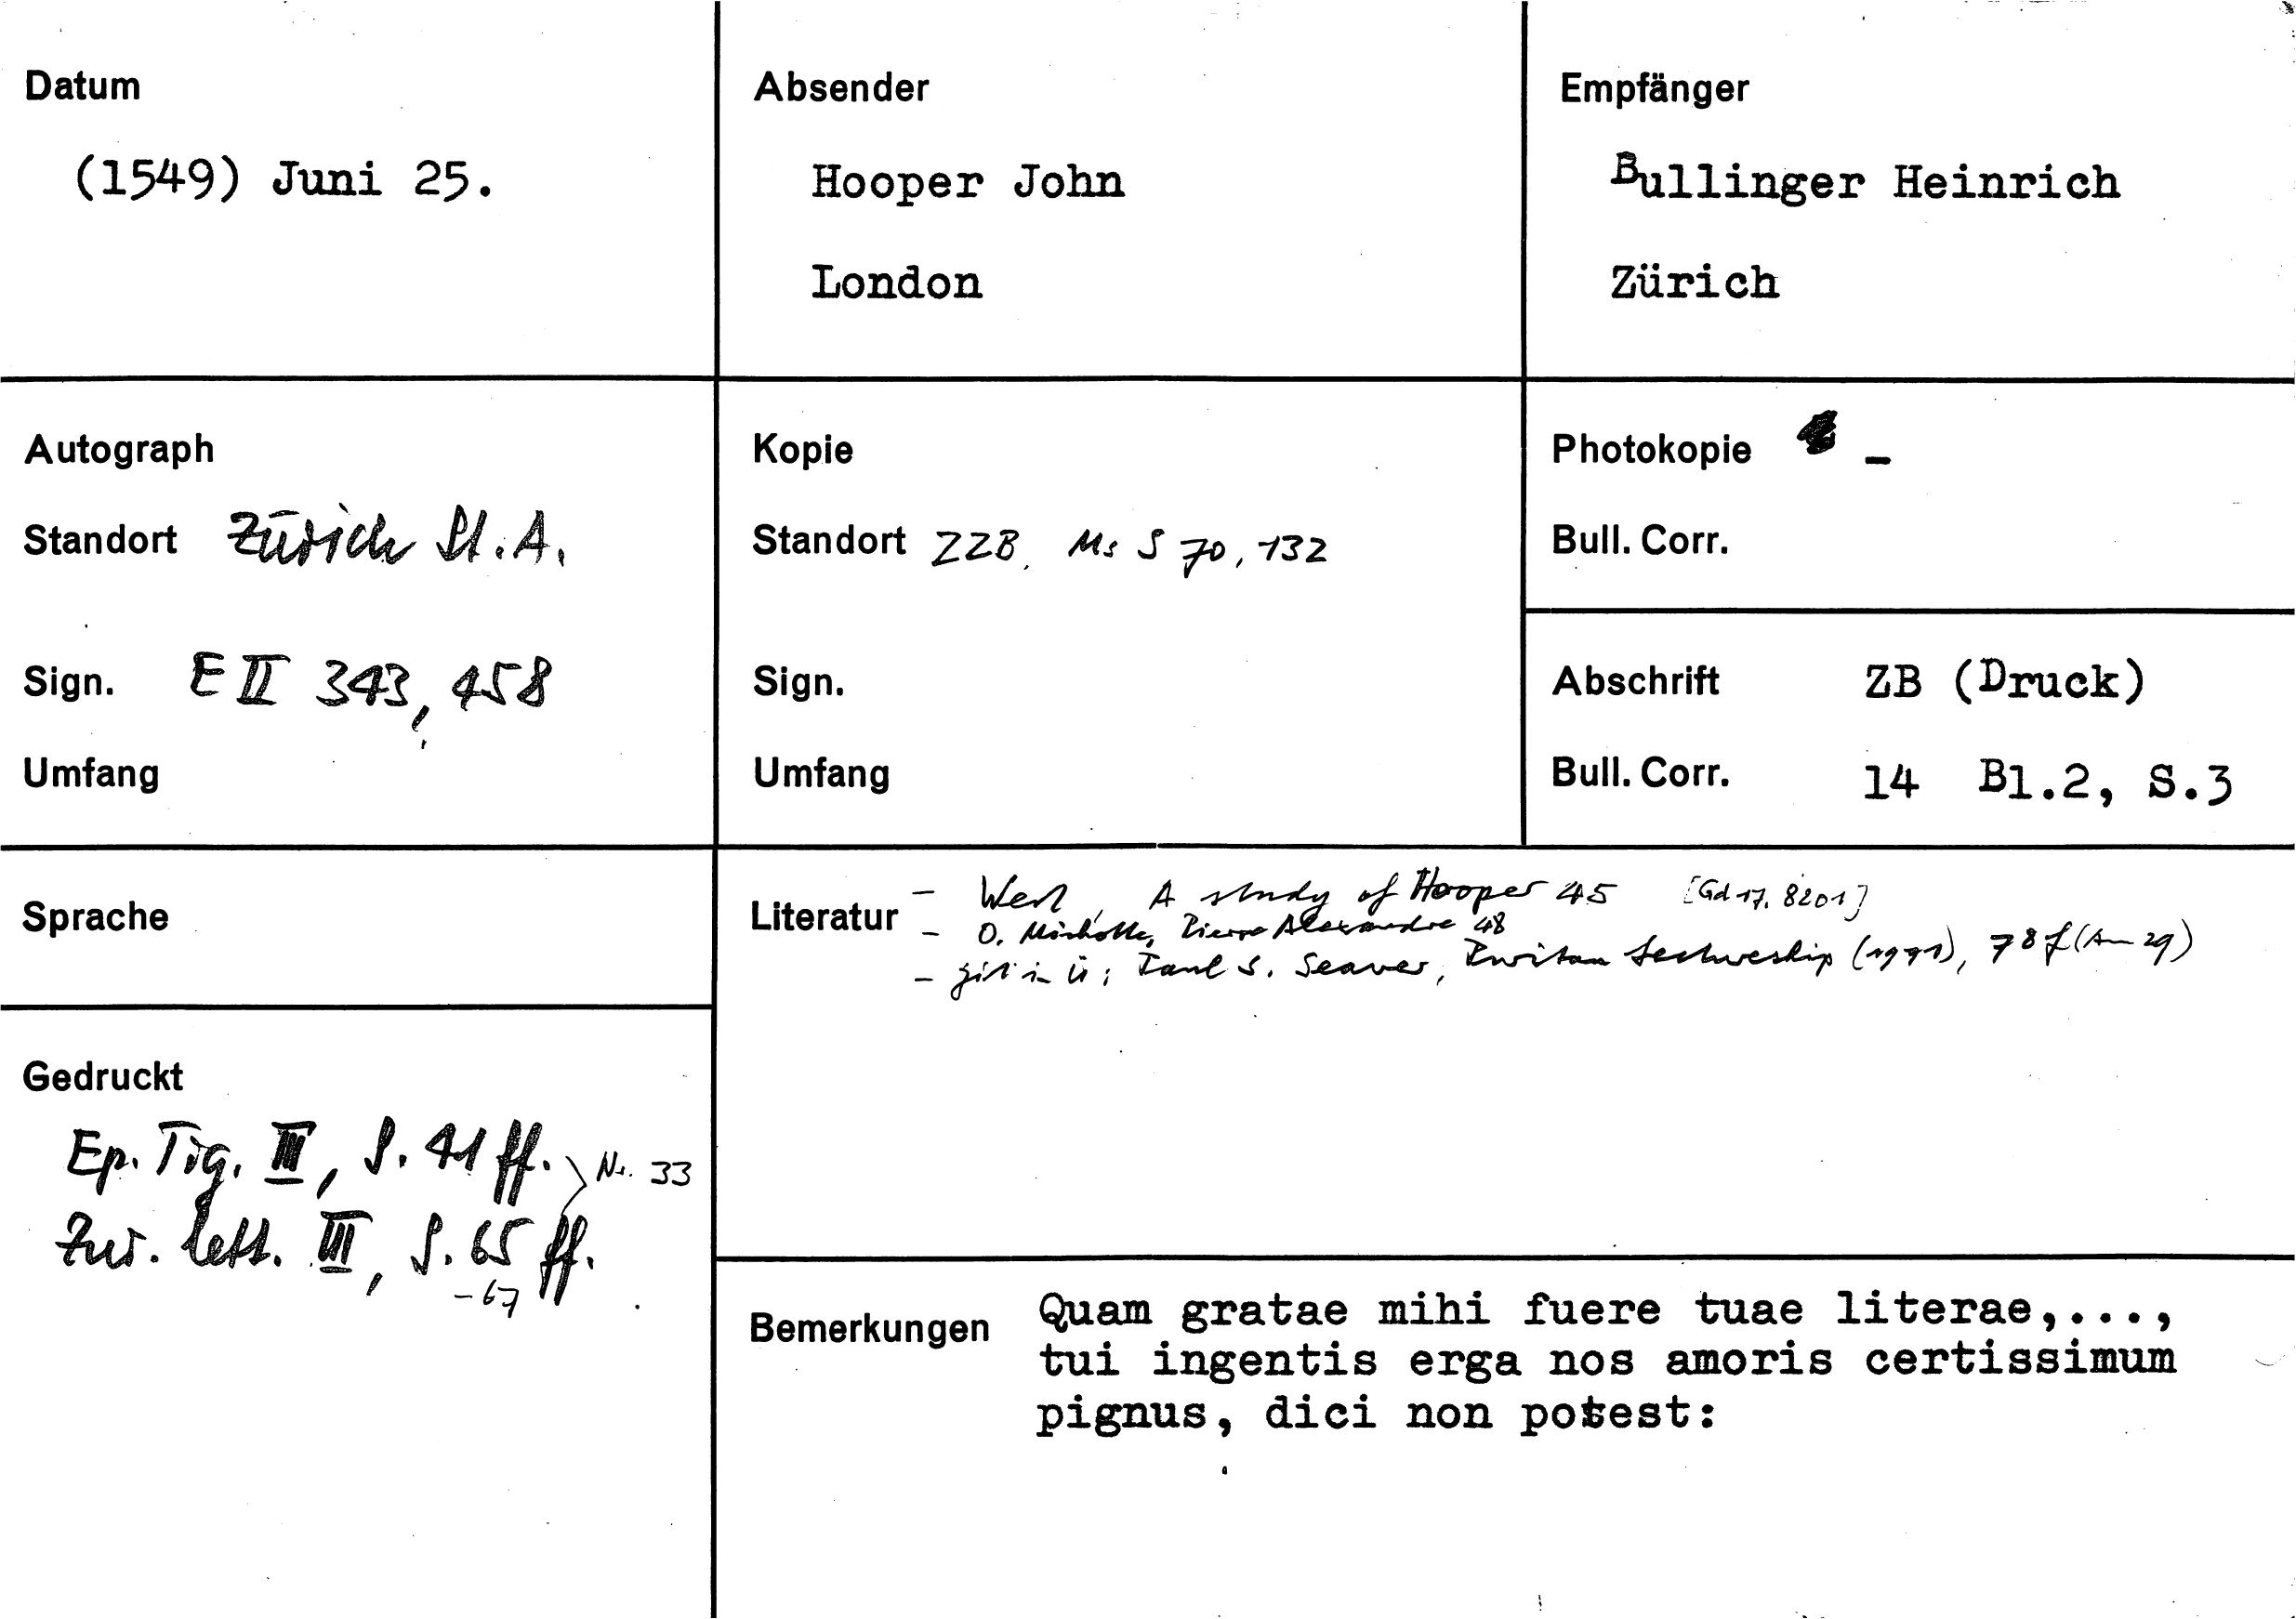 Datum
(1549) Juni 25.
Absender
Hooper John
London
Empfänger
Bullinger Heinrich
Zürich
Autograph
Standort Zürich St.A.
Sign. E II 343, 458
Umfang
Kopie
Standort ZZB, Ms S 70, 132
Sign.
Umfang
Photokopie –
Bull. Corr.
Abschrift ZB (Druck)
Bull. Corr. 14 Bl.2, S.3
Sprache
Literatur – West, A study of Hooper 45 [Gd 17. 8201]
– O. Pierre Alexandre 48
– zit. in Ü: Paul S. Seaver, Puritan Lectureship (1971), 78 f (Anm 29)
Gedruckt
Ep. Tig. III, S. 41 ff. Nr. 33
Zur. lett. III, S. 65 ff.
–67
Bemerkungen Quam gratae mihi fuere tuae literae,...,
tui ingentis erga nos amoris certissimum
pignus, dici non potest: